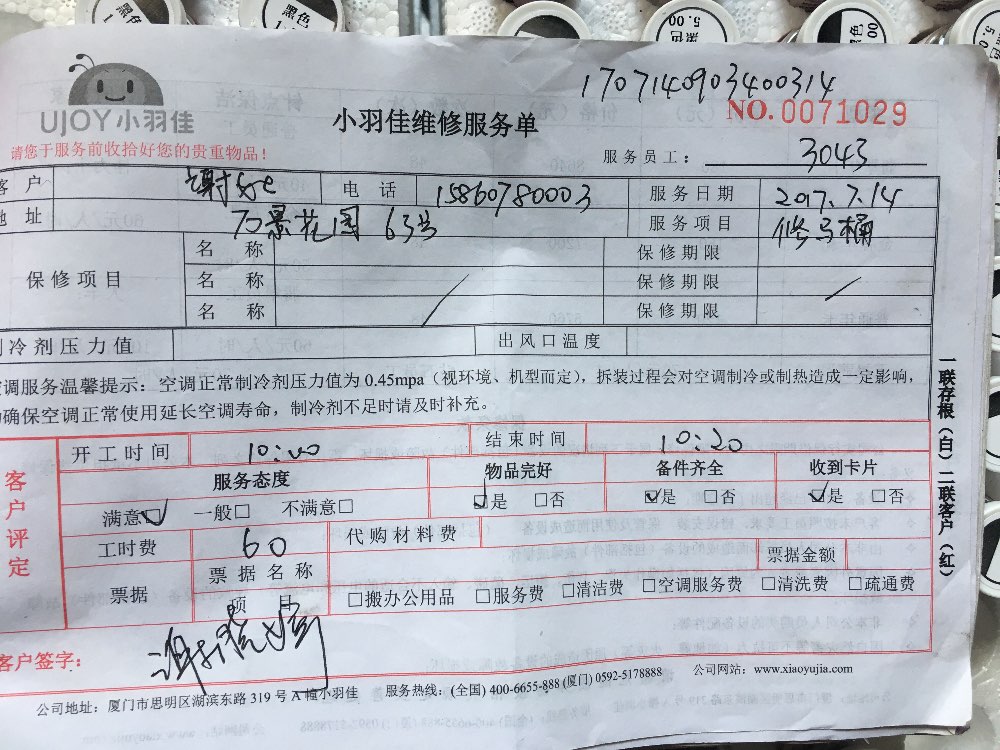 黑色
黑色
5.00
黑色
00
黑色
5.0
1707140903400314
UJOY小羽佳
小羽佳维修服务单
NO.0071029
请您于服务前收拾好您的贵重物品！
服务员工： 3043
客 户 谢 电 话 15860780003 服务日期 2017.7.14
地 址 万景花园 63号 服务项目 修马桶
保修项目
名 称 保修期限
名 称 保修期限
名 称 保修期限
制冷剂压力值 出风口温度
空调服务温馨提示：空调正常制冷剂压力值为 0.45mpa（视环境、机型而定），拆装过程会对空调制冷或制热造成一定影响，
为确保空调正常使用延长空调寿命，制冷剂不足时请及时补充。
一联存根（白）二联客户（红）
客户评定
开工时间 10:00 结束时间 10:20
服务态度 物品完好 备件齐全 收到卡片
满意☑ 一般□ 不满意□ ☑是 □否 ☑是 □否 ☑是 □否
工时费 60 代购材料费 票据金额
票据 票据名称 项 目 □搬办公用品 □服务费 □清洁费 □空调服务费 □清洗费 □疏通费
客户签字：
公司地址：厦门市思明区湖滨东路 319 号 A 幢小羽佳 服务热线：(全国) 400-6655-888 (厦门) 0592-5178888 公司网站：www.xiaoyujia.com